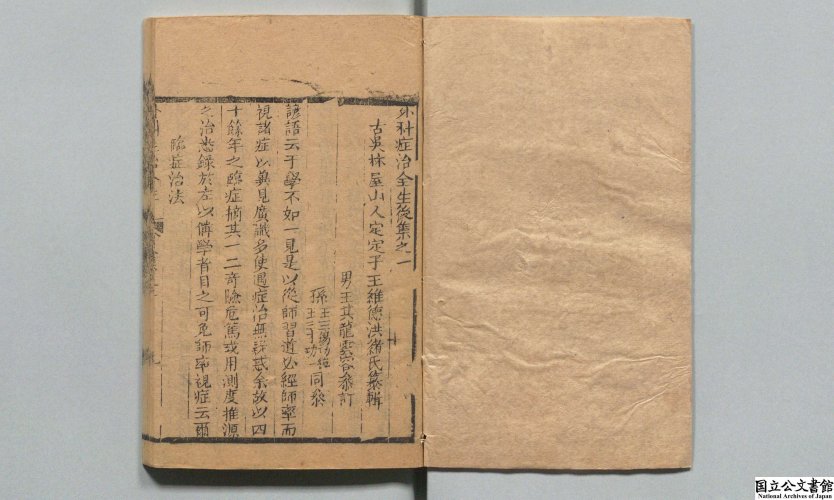 外科症治全生後集之一
古吳林屋山人定定子王維德洪緒氏纂輯
男王其龍雲谷參訂
孫王三錫
王三才功一同參
諺語云千學不如一見是以從師習道必經師率而
視諸症以冀見廣識多使遇症治無疑惑余故以四
十餘年之臨症摘其一二奇險危篤或用測度推源
之治悉錄於左以俾學者目之可免師率視症云爾
臨症治法
国立公文書館
National Archives of Japan